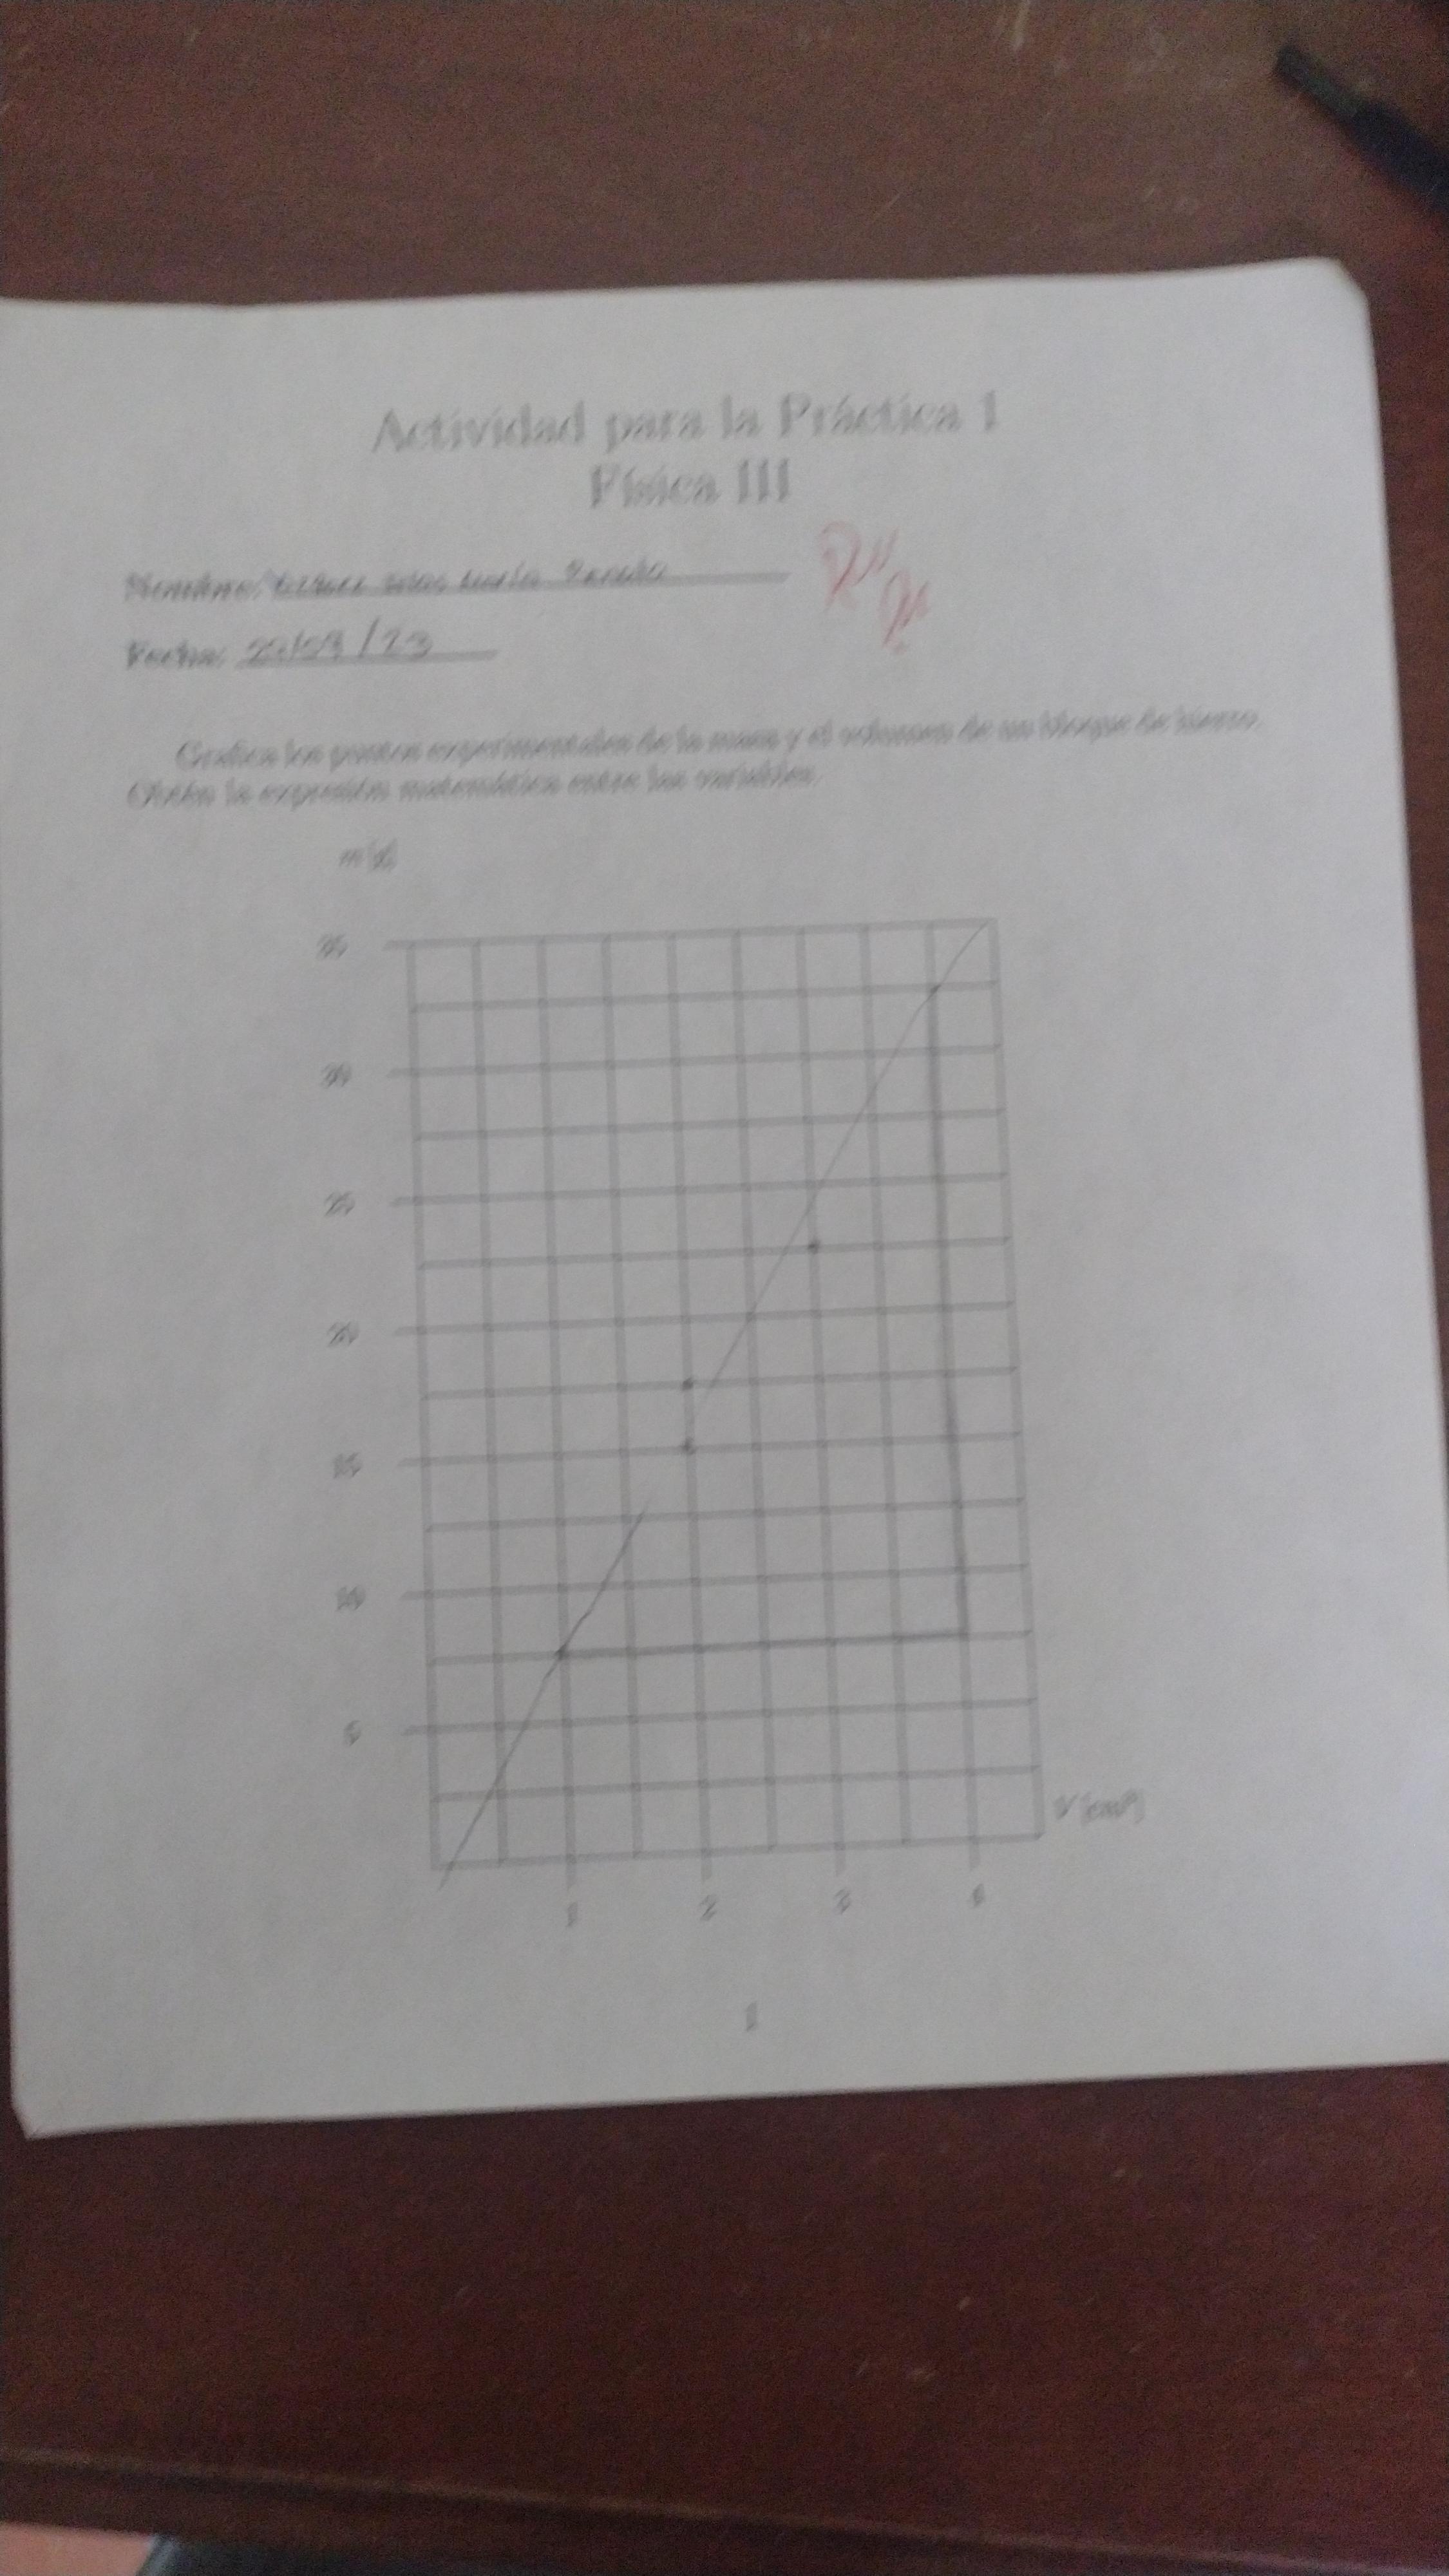 Actividad para la Práctica 1
Física III
Nombre:
Fecha: /23
Grafica los puntos experimentales de la masa y el volumen de un bloque de hierro.
Obtén la expresión matemática entre las variables.
m(g)
35
30
25
20
15
10
5
V(cm³)
1 2 3 4
1